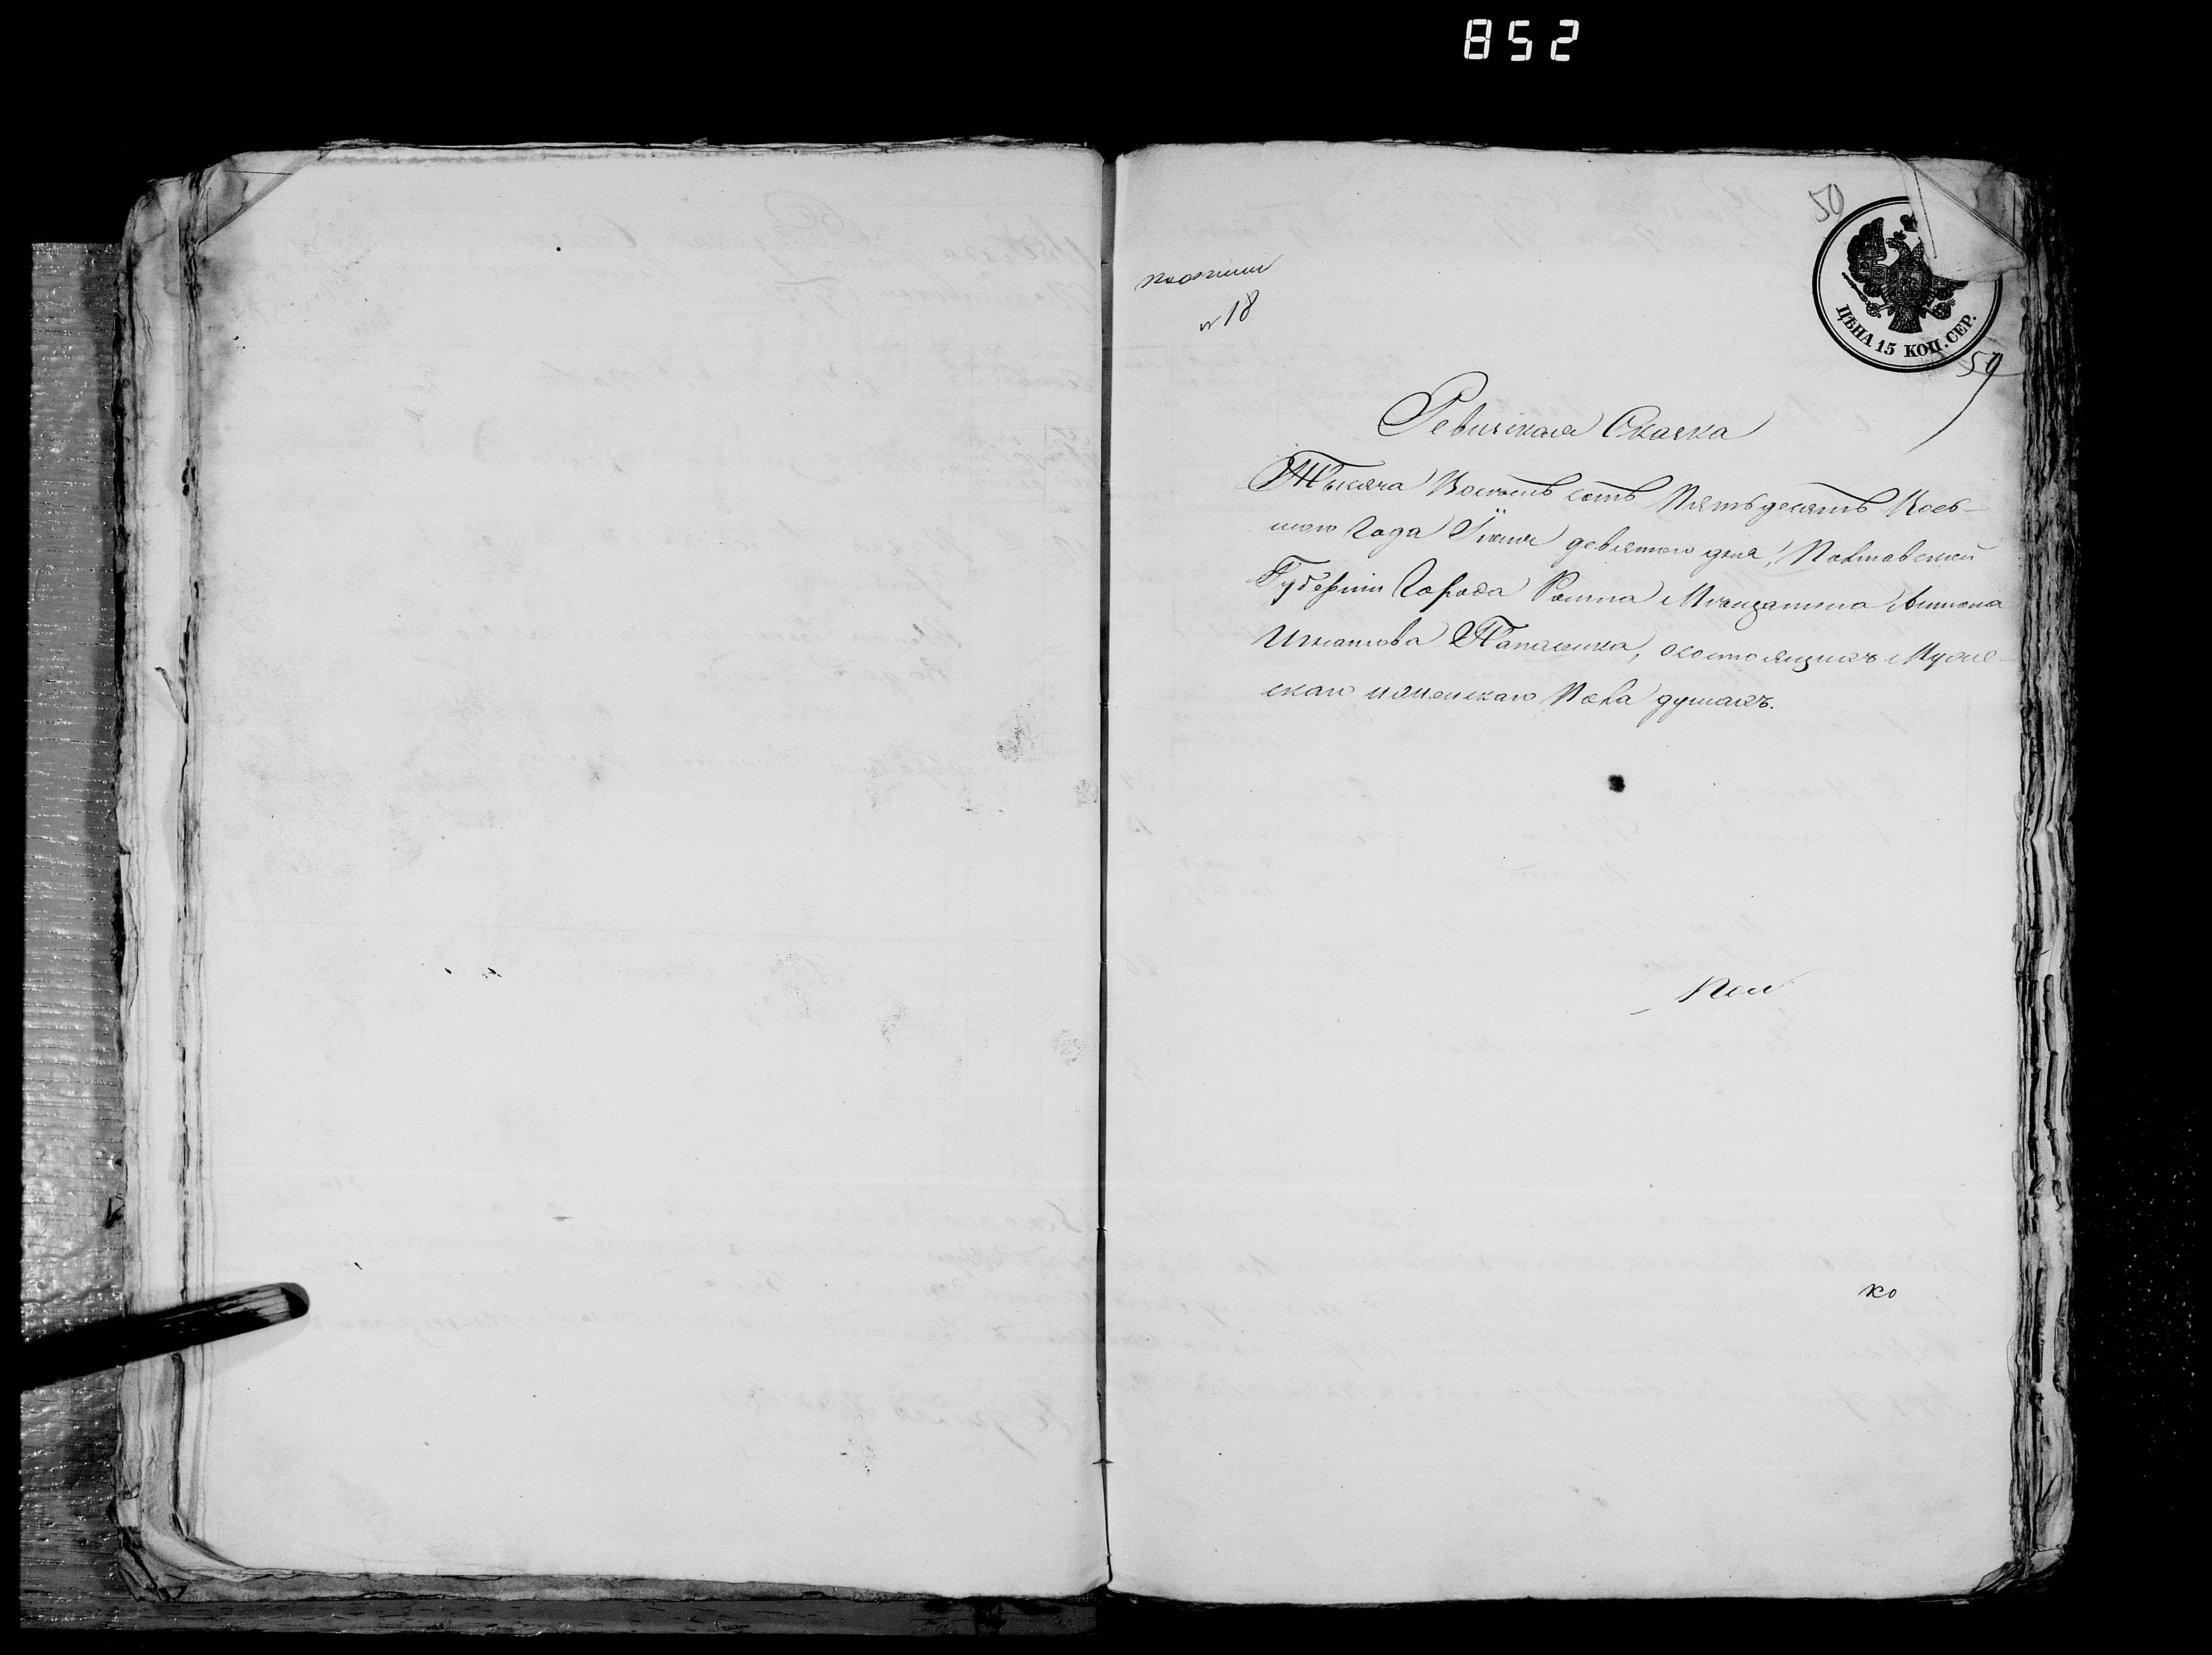 852
50
ЦѢНА 15 КОП. СЕР.
59
№ 18
Ревизская Сказка
Тысяча Восемь сотъ Пятьдесятъ Вось-
маго Года Іюня девятого дня, Полтавской
Губерніи Города Ромна Мѣщанина Антона
Игнатова Панасенка, о состоящихъ Мужес-
скаго и женскаго Пола душахъ.
ко